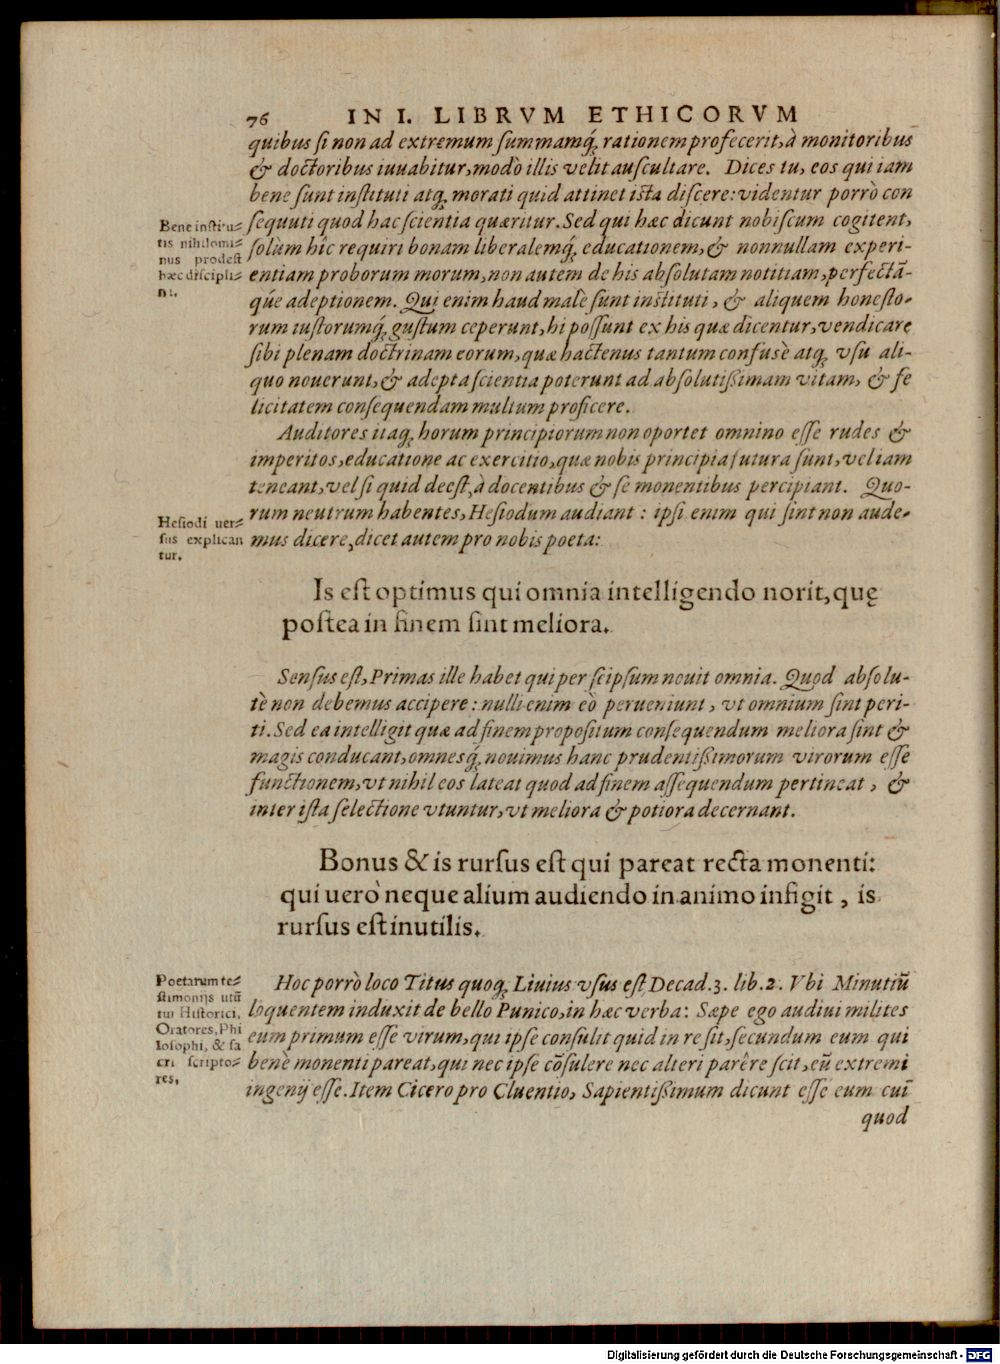 76 IN I. LIBRVM ETHICORVM
quibus ſi non ad extremum ſummamq́; rationem profecerit, à monitoribus
& doctoribus iuuabitur, modò illis velit auſcultare. Dices tu, eos qui iam
bene ſunt inſtituti atq; morati quid attinet iſta diſcere: videntur porrò con
ſequuti quod hac ſcientia quæritur. Sed qui hæc dicunt nobiſcum cogitent,
ſolùm hîc requiri bonam liberalemq́; educationem, & nonnullam experi-
entiam proborum morum, non autem de his abſolutam notitiam, perfectā-
qúe adeptionem. Qui enim haud malè ſunt inſtituti, & aliquem honeſto-
rum iuſtorumq́; guſtum ceperunt, hi poſſunt ex his quæ dicentur, vendicare
ſibi plenam doctrinam eorum, quæ hactenus tantum confusè atq; vſu ali-
quo nouerunt, & adepta ſcientia poterunt ad abſolutißimam vitam, & fe
licitatem conſequendam multum proficere.
Bene inſtitu-
tis nihilomi-
nus prodeſt
hæc diſcipli-
na.
Auditores itaq; horum principiorum non oportet omnino eſſe rudes &
imperitos, educatione ac exercitio, quæ nobis principia futura ſunt, vel iam
teneant, vel ſi quid deeſt, à docentibus & ſe monentibus percipiant. Quo-
rum neutrum habentes, Heſiodum audiant: ipſi enim qui ſint non aude-
mus dicere, dicet autem pro nobis poeta:
Heſiodi uer-
ſus explican
tur.
Is eſt optimus qui omnia intelligendo norit, quę
poſtea in finem ſint meliora.
Senſus eſt, Primas ille habet qui per ſeipſum nouit omnia. Quod abſolu-
tè non debemus accipere: nulli enim eò perueniunt, vt omnium ſint peri-
ti. Sed ea intelligit quæ ad finem propoſitum conſequendum meliora ſint &
magis conducant, omnesq́; nouimus hanc prudentißimorum virorum eſſe
functionem, vt nihil eos lateat quod ad finem aſſequendum pertineat, &
inter iſta ſelectione vtuntur, vt meliora & potiora decernant.
Bonus & is rurſus eſt qui pareat recta monenti:
qui uerò neque alium audiendo in animo infigit, is
rurſus eſt inutilis.
Hoc porrò loco Titus quoq; Liuius vſus eſt Decad. 3. lib. 2. Vbi Minutiū
loquentem induxit de bello Punico, in hæc verba: Sæpe ego audiui milites
eum primum eſſe virum, qui ipſe conſulit quid in re ſit, ſecundum eum qui
benè monenti pareat, qui nec ipſe cōſulere nec alteri parêre ſcit, eū extremi
ingenij eſſe. Item Cicero pro Cluentio, Sapientißimum dicunt eſſe eum cuī
Poetarum te-
ſtimonijs utū
tur Hiſtorici,
Oratores, Phi
loſophi, & ſa
cri ſcripto-
res.
quod
Digitalisierung gefördert durch die Deutsche Forschungsgemeinschaft - DFG